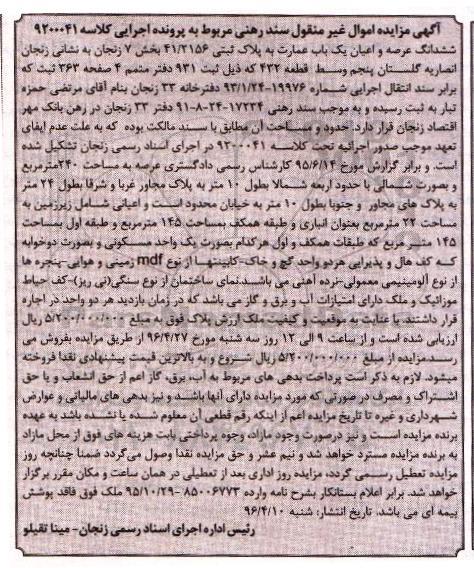 آگهی مزایده اموال غیر منقول سند رهنی مربوط به پرونده اجرایی کلاسه ۹۲۰۰۰۴۱
ششدانگ عرصه و اعیان یک باب عمارت به پلاک ثبتی ۴۱/۲۱۵۶ بخش ۷ زنجان به نشانی زنجان
انصاریه گلستان پنجم وسط قطعه ۴۳۲ که ذیل ثبت ۹۳۱ دفتر متمم ۴ صفحه ۳۶۳ ثبت که
برابر سند انتقال اجرایی شماره ۱۹۹۷۶-۹۳/۱/۲۴ دفترخانه ۳۳ زنجان بنام آقای مرتضی حمزه
تبار به ثبت رسیده و به موجب سند رهنی ۱۷۲۳۴-۲۴-۸-۹۱ دفتر ۳۳ زنجان در رهن بانک مهر
اقتصاد زنجان قرار دارد. حدود و مساحت آن مطابق با سند مالکت بوده که به علت عدم ایفای
تعهد موجب صدور اجرائیه تحت کلاسه ۹۲۰۰۰۴۱ در اجرای اسناد رسمی زنجان تشکیل شده
است. و برابر گزارش مورخ ۹۵/۶/۱۴ کارشناس رسمی دادگستری عرصه به مساحت ۲۴۰مترمربع
و بصورت شمالی با حدود اربعه شمالا بطول ۱۰ متر به پلاک مجاور غربا و شرقا بطول ۲۴ متر
به پلاک های مجاور و جنوبا بطول ۱۰ متر به خیابان محدود است و اعیانی شامل زیرزمین به
مساحت ۲۲ مترمربع بعنوان انباری و طبقه همکف بمساحت ۱۴۵ مترمربع و طبقه اول بمساحت
۱۴۵ متر مربع که طبقات همکف و اول هرکدام بصورت یک واحد مسکونی و بصورت دوخوابه
که کف هال و پذیرایی هردو واحد گچ و خاک-کابینتها از نوع mdf زمینی و هوایی-پنجره ها
از نوع آلومینیمی معمولی-نرده آهنی می باشد.نمای ساختمان از نوع سنگی(نی ریز)-کف حیاط
موزائیک و ملک دارای امتیازات آب و برق و گاز می باشد که در زمان بازدید هر دو واحد در اجاره
قرار داشتند. با عنایت به موقعیت و کیفیت ملک ارزش پلاک فوق به مبلغ ۵/۲۰۰/۰۰۰/۰۰۰ ریال
ارزیابی شده است و از ساعت ۹ الی ۱۲ روز سه شنبه مورخ ۹۶/۴/۲۷ از طریق مزایده بفروش می
رسد.مزایده از مبلغ ۵/۲۰۰/۰۰۰/۰۰۰ ریال شروع و به بالاترین قیمت پیشنهادی نقدا فروخته
میشود. لازم به ذکر است پرداخت بدهی های مربوط به آب، برق، گاز اعم از حق انشعاب و یا حق
اشتراک و مصرف در صورتی که مورد مزایده دارای آنها باشد و نیز بدهی های مالیاتی و عوارض
شهرداری و غیره تا تاریخ مزایده اعم از اینکه رقم قطعی آن معلوم شده یا نشده باشد به عهده
برنده مزایده است و نیز درصورت وجود مازاد، وجوه پرداختی بابت هزینه های فوق از محل مازاد
به برنده مزایده مسترد خواهد شد و نیم عشر و حق مزایده نقدا وصول می‌گردد ضمنا چنانچه روز
مزایده تعطیل رسمی گردد، مزایده روز اداری بعد از تعطیلی در همان ساعت و مکان مقرر برگزار
خواهد شد. برابر اعلام بستانکار بشرح نامه وارده ۸۵۰۰۶۷۷۳ -۹۵/۱۰/۲۹ ملک فوق فاقد پوشش
بیمه ای می باشد. تاریخ انتشار: شنبه ۹۶/۴/۱۰
رئیس اداره اجرای اسناد رسمی زنجان- مینا تقیلو